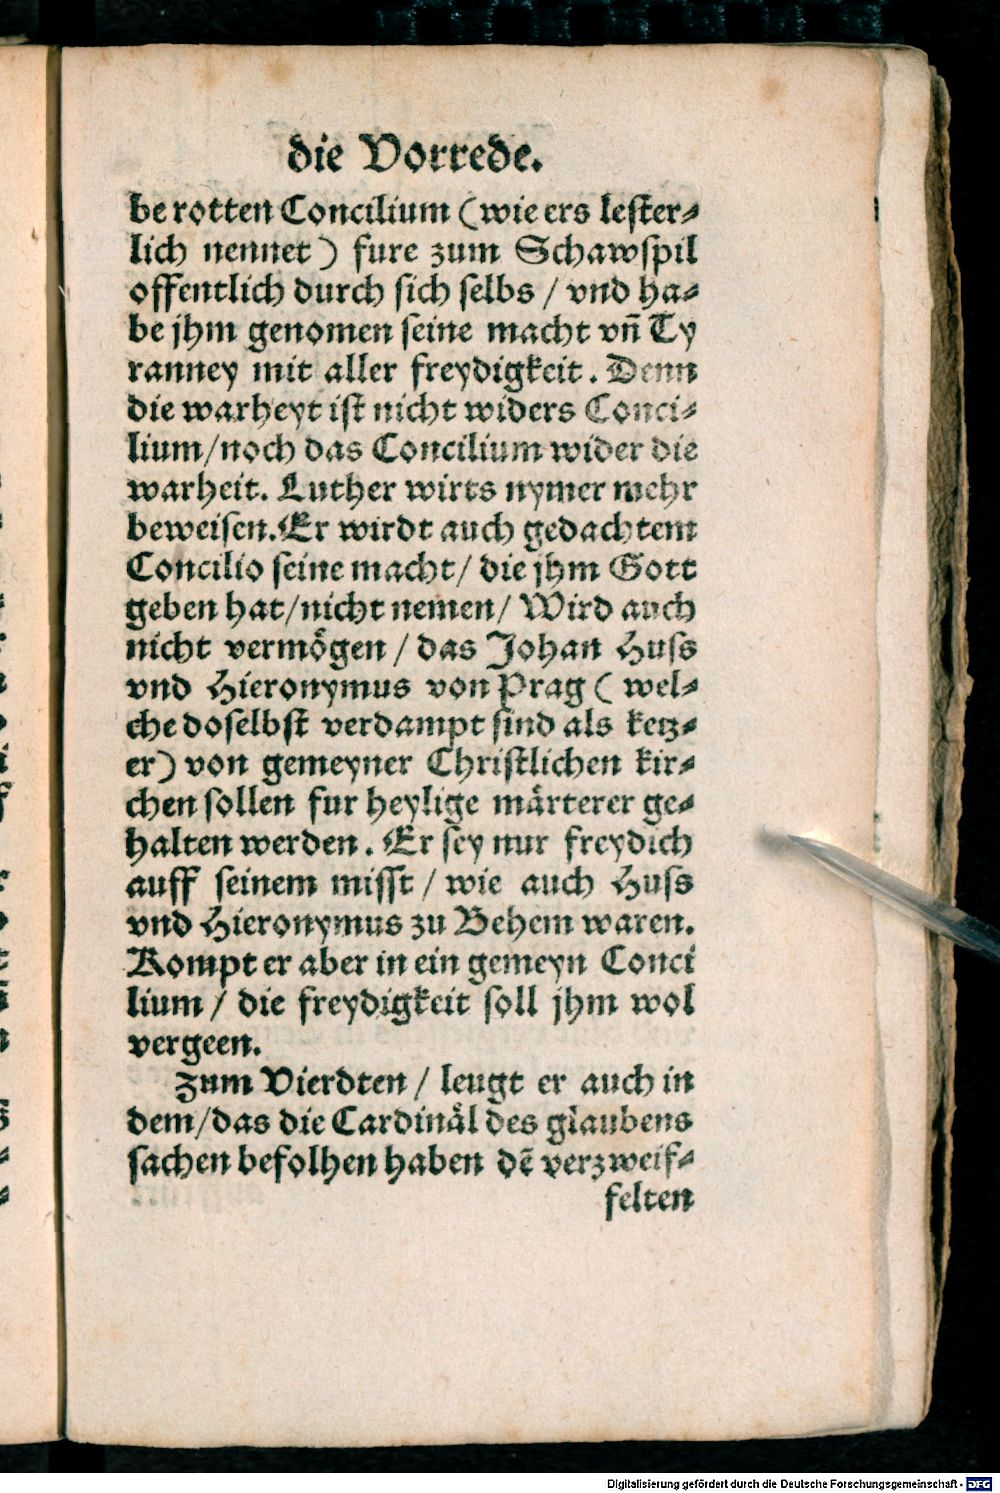 die Vorrede.
be rotten Concilium (wie ers lester⸗
lich nennet) fure zum Schawspil
offentlich durch sich selbs / vnd ha⸗
be jhm genomen seine macht vñ Ty
ranney mit aller freydigkeit. Denn
die warheyt ist nicht widers Conci⸗
lium/noch das Concilium wider die
warheit. Luther wirts nymer mehr
beweisen. Er wirdt auch gedachtem
Concilio seine macht/ die jhm Gott
geben hat/nicht nemen/ Wird auch
nicht vermoͤgen / das Johan Huss
vnd Hieronymus von Prag ( wel⸗
che doselbst verdampt sind als ketz⸗
er) von gemeyner Christlichen kir⸗
chen sollen fur heylige maͤrterer ge⸗
halten werden. Er sey nur freydich
auff seinem misst / wie auch Huss
vnd Hieronymus zu Behem waren.
Kompt er aber in ein gemeyn Conci
lium / die freydigkeit soll jhm wol
vergeen.
Zum Vierdten / leugt er auch in
dem/das die Cardinaͤl des glaubens
sachen befolhen haben dẽ verzweif⸗
felten
Digitalisierung gefördert durch die Deutsche Forschungsgemeinschaft - DFG